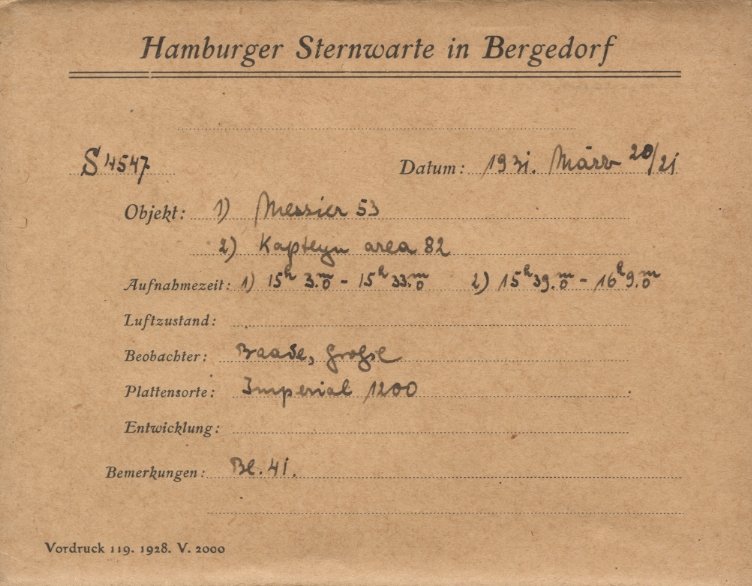 Hamburger Sternwarte in Bergedorf
S 4547 Datum: 1931. März 20/21
Objekt: 1) Messier 53
2) Kapteyn area 82
Aufnahmezeit: 1) 15ʰ 3.ᵐ0 - 15ʰ 33.ᵐ0 2) 15ʰ 39.ᵐ0 - 16ʰ 9.ᵐ0
Luftzustand:
Beobachter: Baade, Große
Plattensorte: Imperial 1200
Entwicklung:
Bemerkungen: Bl. 41.
Vordruck 119. 1928. V. 2000